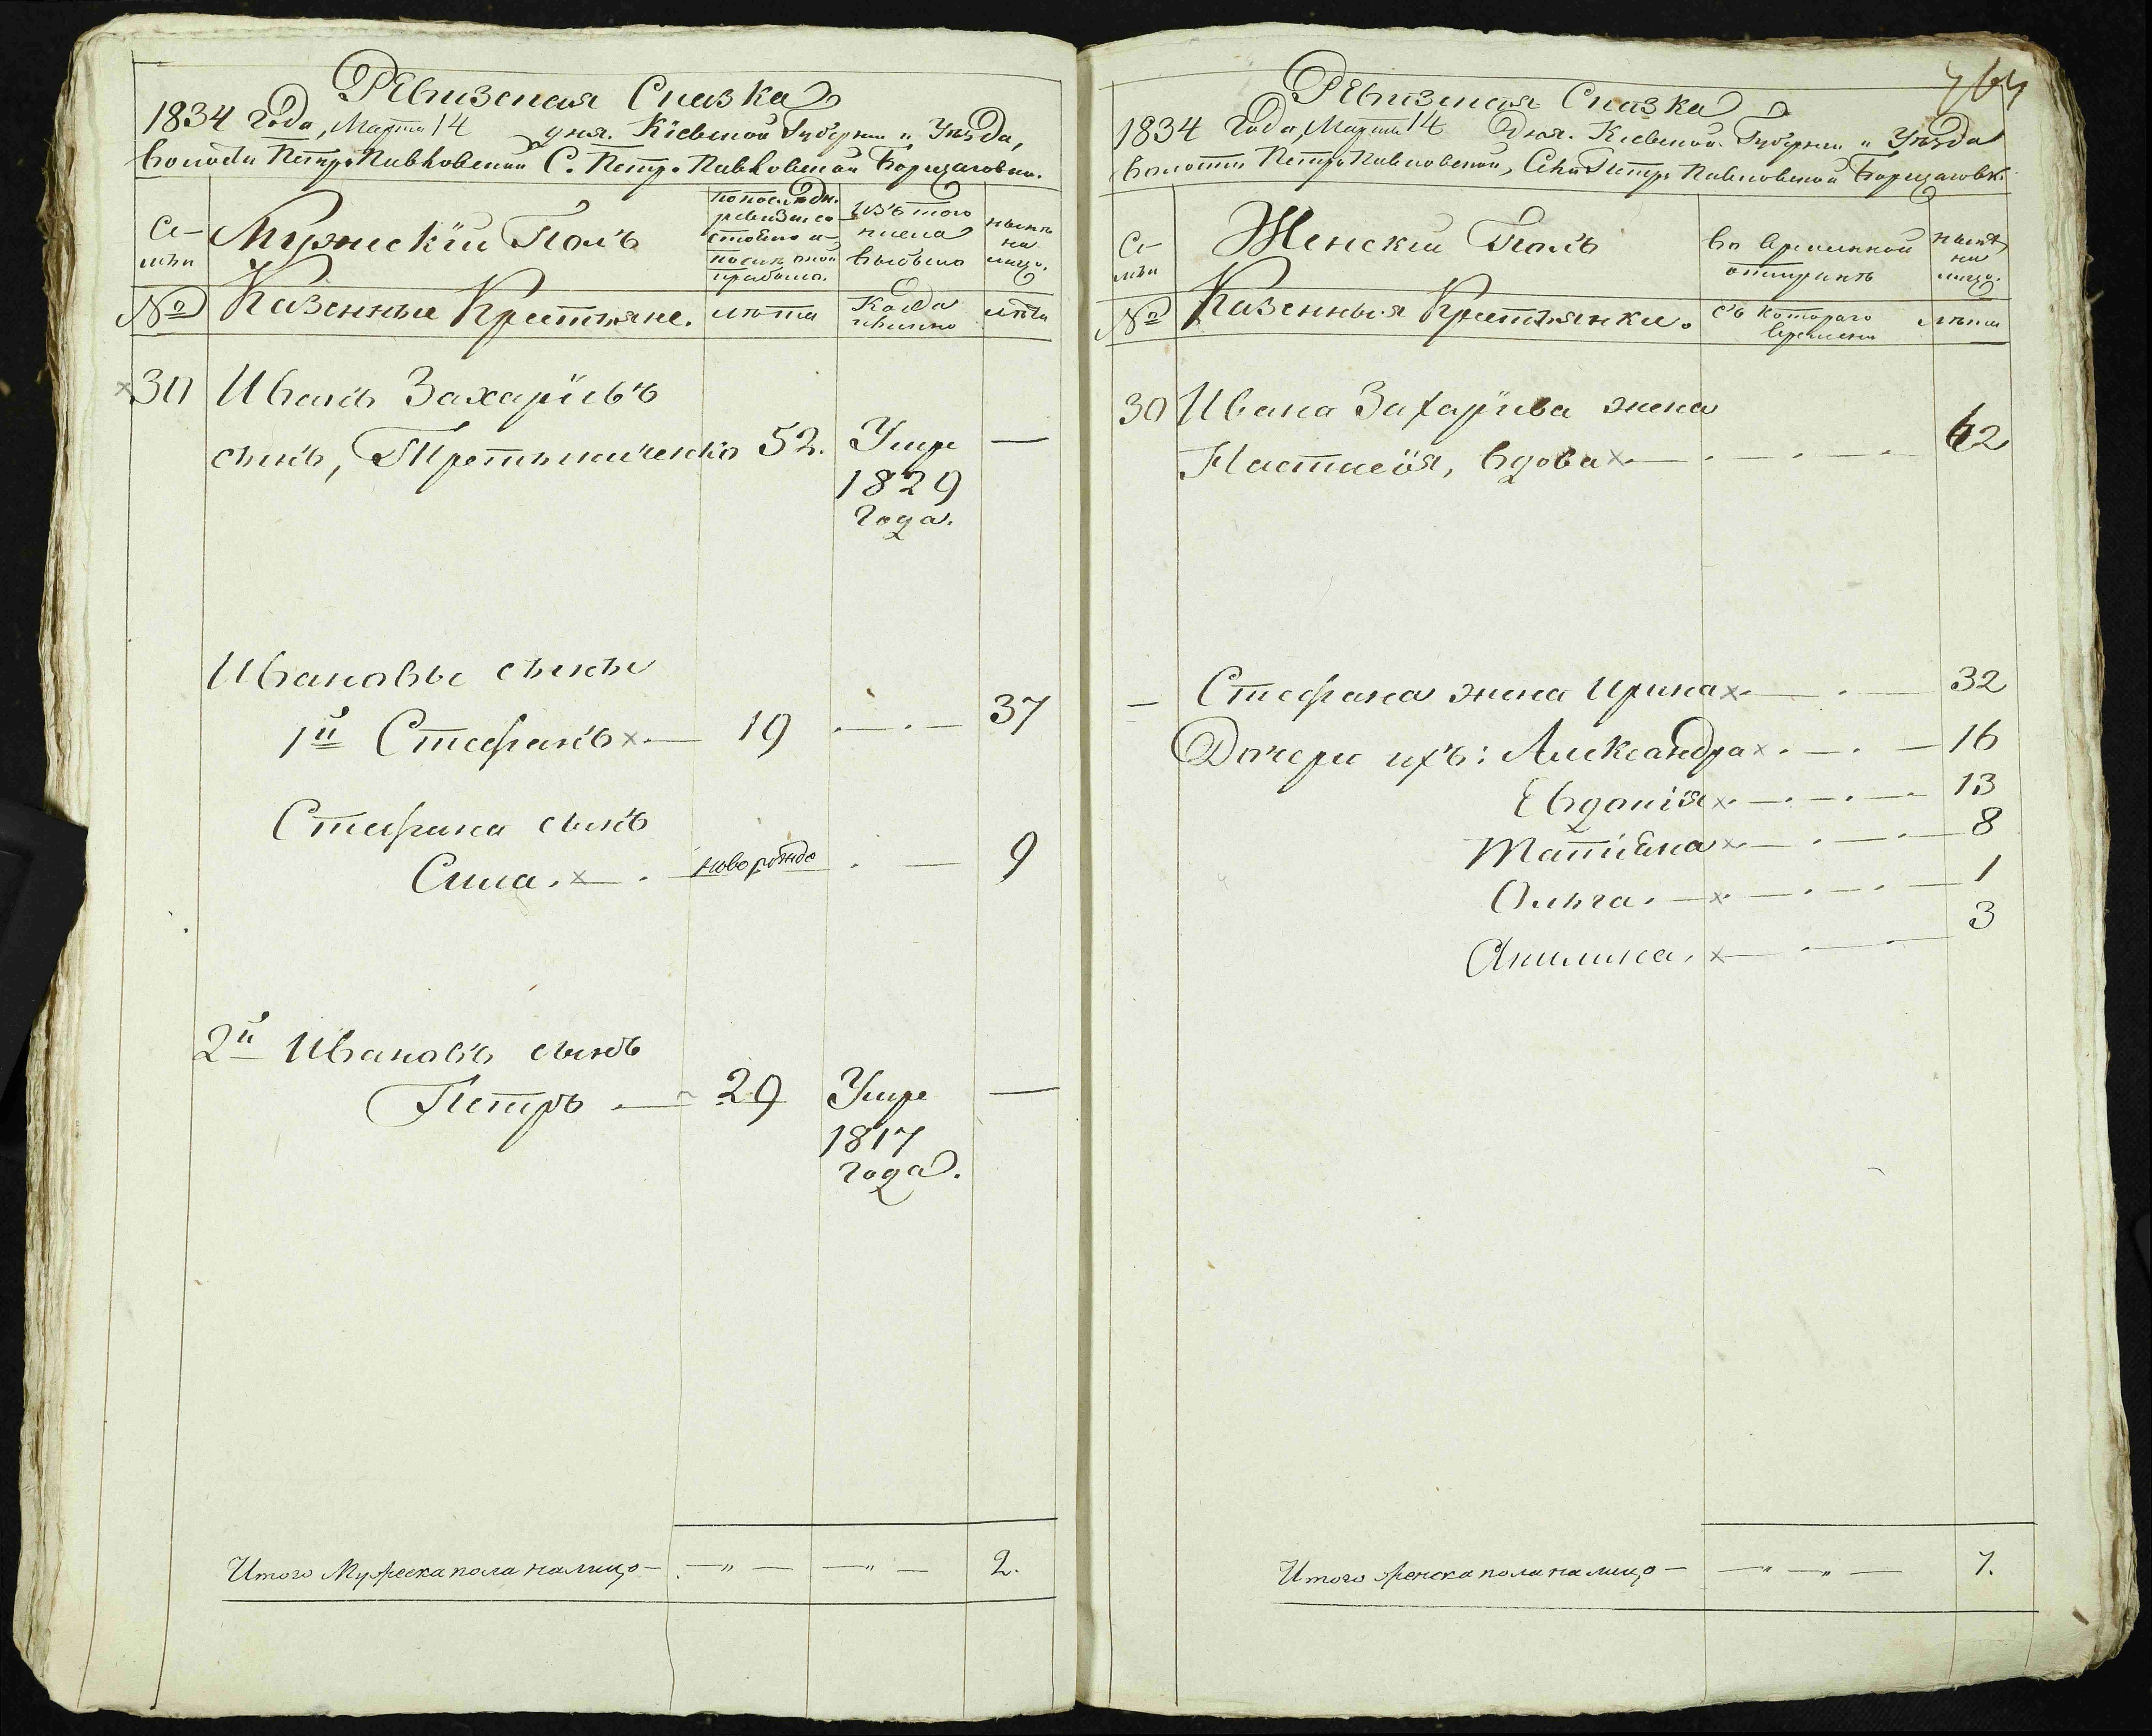 Ревизская Сказка
1834 года, Марта 14 дня. Кіевской Губерніи и Уѣзда,
Волости Петро Павловской С. Петро Павловской Борщаговки.
Се-
мьи
Мужескій Полъ
По послѣдн.
ревизіи со-
стояло и
послѣ оной
прибыло.
Изъ того
числа
выбыло
Нынѣ
на
лицо.
№
Казенные Крестьяне.
лѣта
Когда
именно
лѣта
30 Иванъ Захаріевъ
сынъ, Третьниченко 52. Умре —
1829
года.
Ивановы сыны
1й Стефанъ 19 37
Стефана сынъ
Сила. новорожд 9
2й Ивановъ сынъ
Петръ 29 Умре —
1817
года.
Итого Мужеска пола на лицо — —„— —„— 2.
Ревизская Сказка
1834 года, Марта 14 дня. Кіевской Губерніи и Уѣзда
Волости Петро Павловской, Села Петро Павловской Борщаговк.
Се-
мьи
Женскій Полъ
Во временной
отлучкѣ
Нынѣ
на
лицо.
№
Казенныя Крестьянки.
Съ котораго
времени
лѣта
30 Ивана Захаріева жена
Настасія, вдова 62
— Стефана жена Ирина 32
Дочери ихъ: Александра 16
Евдокія 13
Татіана 8
Ольга. 1
Акилина. 3
Итого женска пола на лицо — —„—„— 7.